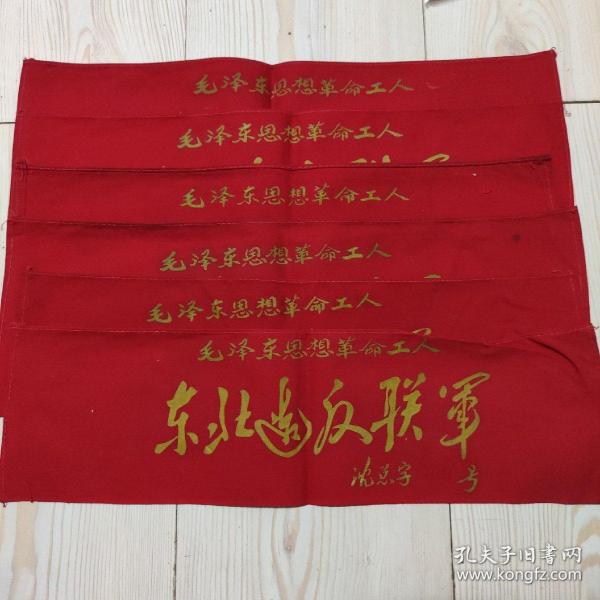 毛泽东思想革命工人
毛泽东思想革命工人
毛泽东思想革命工人
毛泽东思想革命工人
毛泽东思想革命工人
毛泽东思想革命工人
东北造反联軍
沈总字 号
孔夫子旧书网
www.kongfz.com